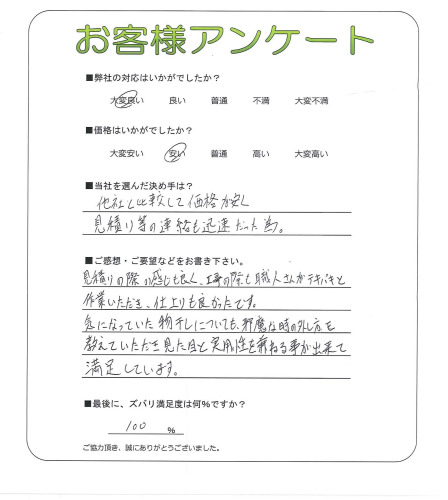 お客様アンケート
■弊社の対応はいかがでしたか？
大変良い 良い 普通 不満 大変不満
■価格はいかがでしたか？
大変安い 安い 普通 高い 大変高い
■当社を選んだ決め手は？
他社と比較して価格が安く
見積り等の連絡も迅速だった為。
■ご感想・ご要望などをお書き下さい。
見積りの際の感じも良く、工事の際も職人さんがテキパキと
作業いただき、仕上りも良かったです。
気になっていた物干しについても、邪魔な時の外し方を
教えていただき見た目と実用性を兼ねる事が出来て
満足しています。
■最後に、ズバリ満足度は何％ですか？
100 %
ご協力頂き、誠にありがとうございました。